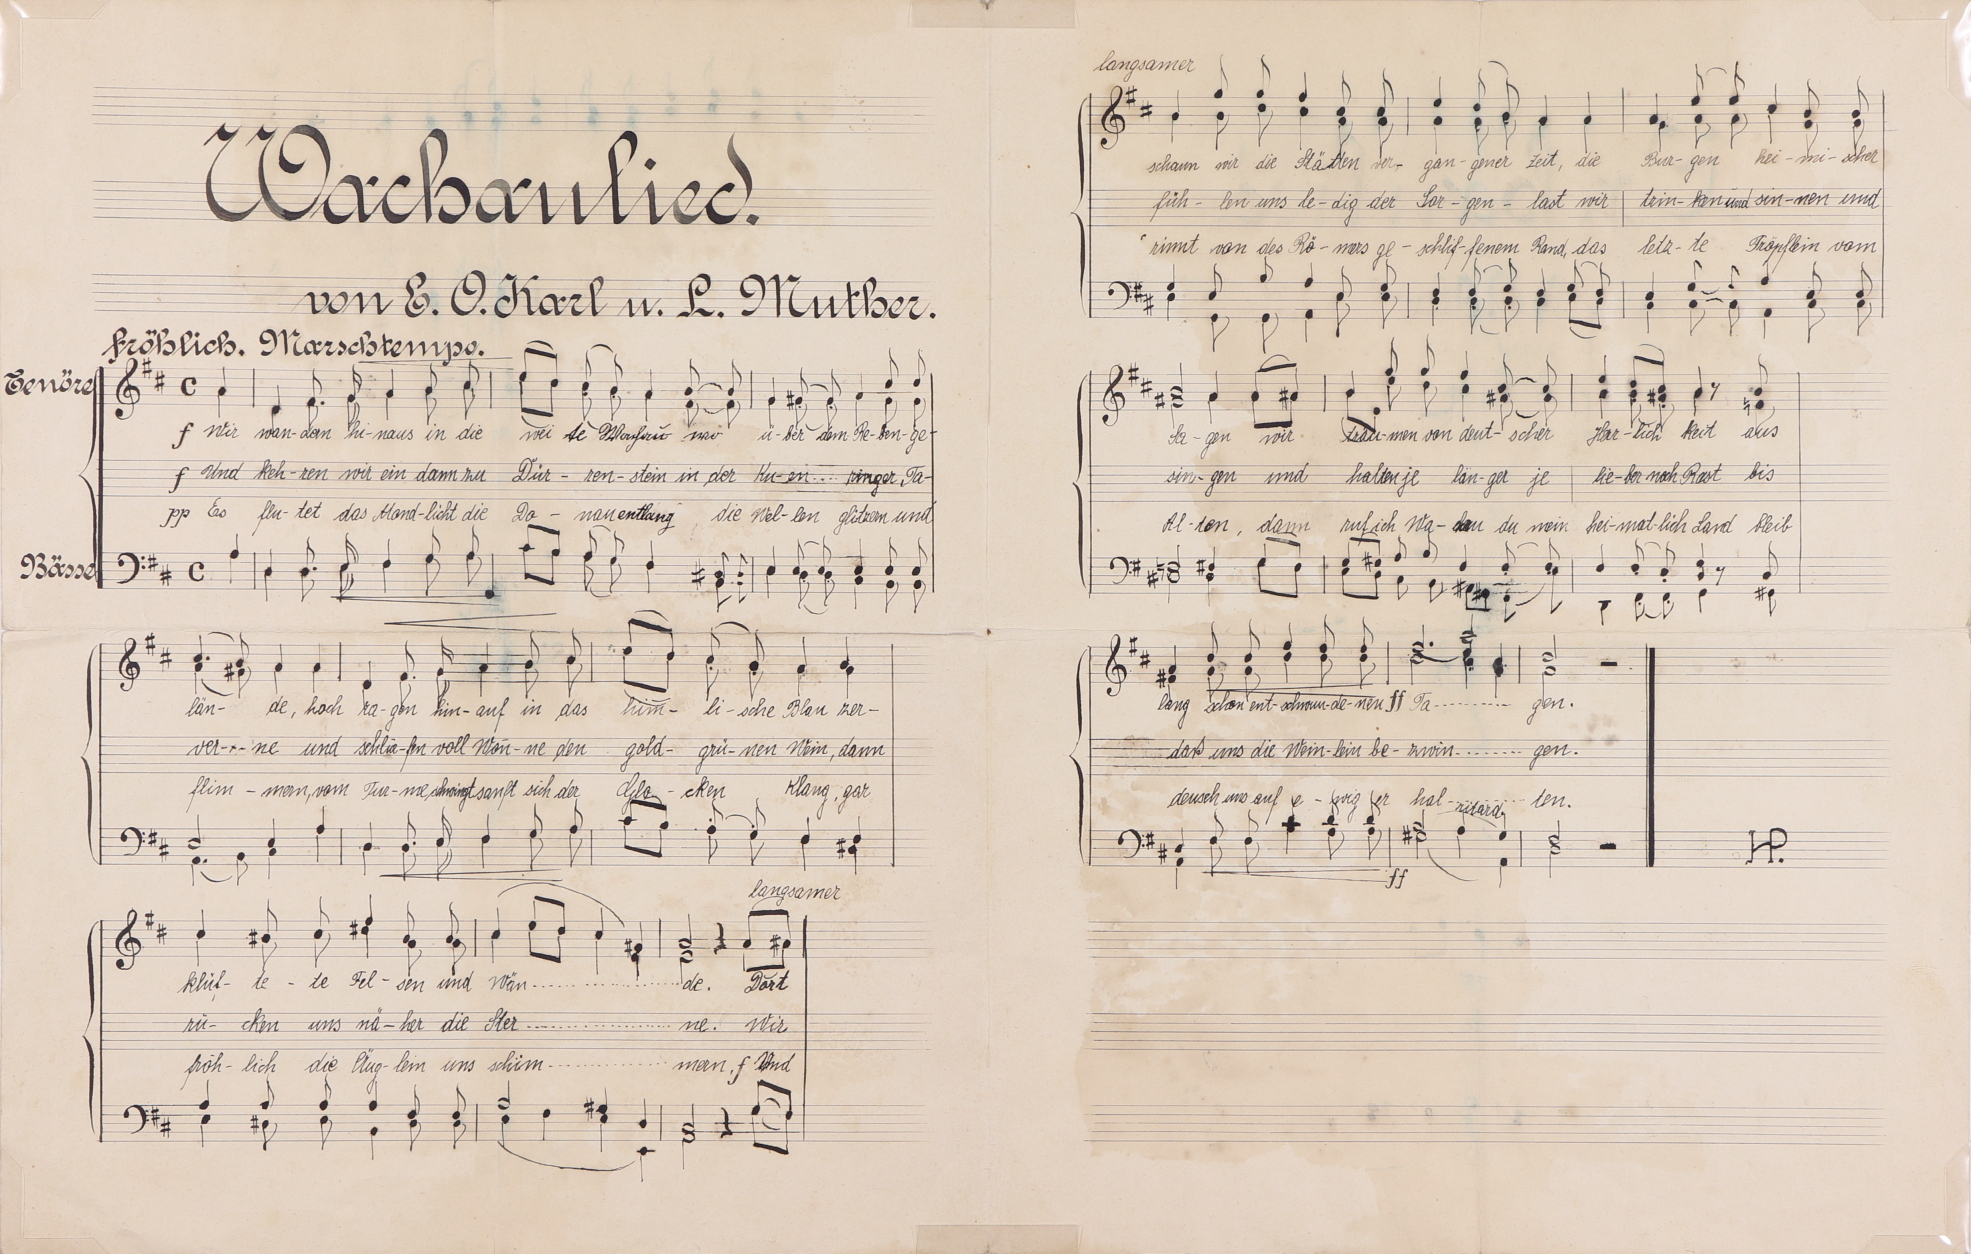 Wachaulied.
von E. O. Karl u. L. Muther.
fröhlich. Marschtempo.
Tenöre
f Wir wan-dern hi-naus in die wei te Wachau wo ü-ber dem Re-ben-ge-
f Und keh-ren wir ein dann zu Dür-ren-stein in der Ku-en.... ringer Ta-
pp Es flu-tet das Mond-licht die Do-nau entlang die Wel-len glitzern und
Bässe
län- de, hoch ra-gen hin-auf in das him- li-sche Blau zer-
ver--ne und schlür-fen voll Won-ne den gold- grü-nen Wein, dann
flim-mern, vom Tur-me schwingt sanft sich der Glo-cken Klang, gar
langsamer
klüf- te-te Fel-sen und Wän.................. de. Dort
rü- cken uns nä-her die Ster.................. ne. Wir
fröh-lich die Äug-lein uns schim.............. mern, f Und
langsamer
schaun wir die Stätten ver-gan-gener Zeit, die Bur-gen hei-mi-scher
füh-len uns le-dig der Sor-gen-last wir trin-ken und sin-nen und
rinnt von des Rö-mers ge-schlif-fenem Rand, das letz-te Tröpflein vom
Sa-gen wir träu-men von deut-scher Herr-lich keit aus
sin-gen und halten je län-ger je lie-ber noch Rast bis
Al-ten, dann ruf ich Wa- du mein hei-mat-lich Land bleib
lang schon ent-schwun-de-nen ff Ta.......... gen.
daß uns die Wein-lein be-zwin........ gen.
deutsch uns auf e-wig er hal- ........ ten.
ritard.
ff
HP.